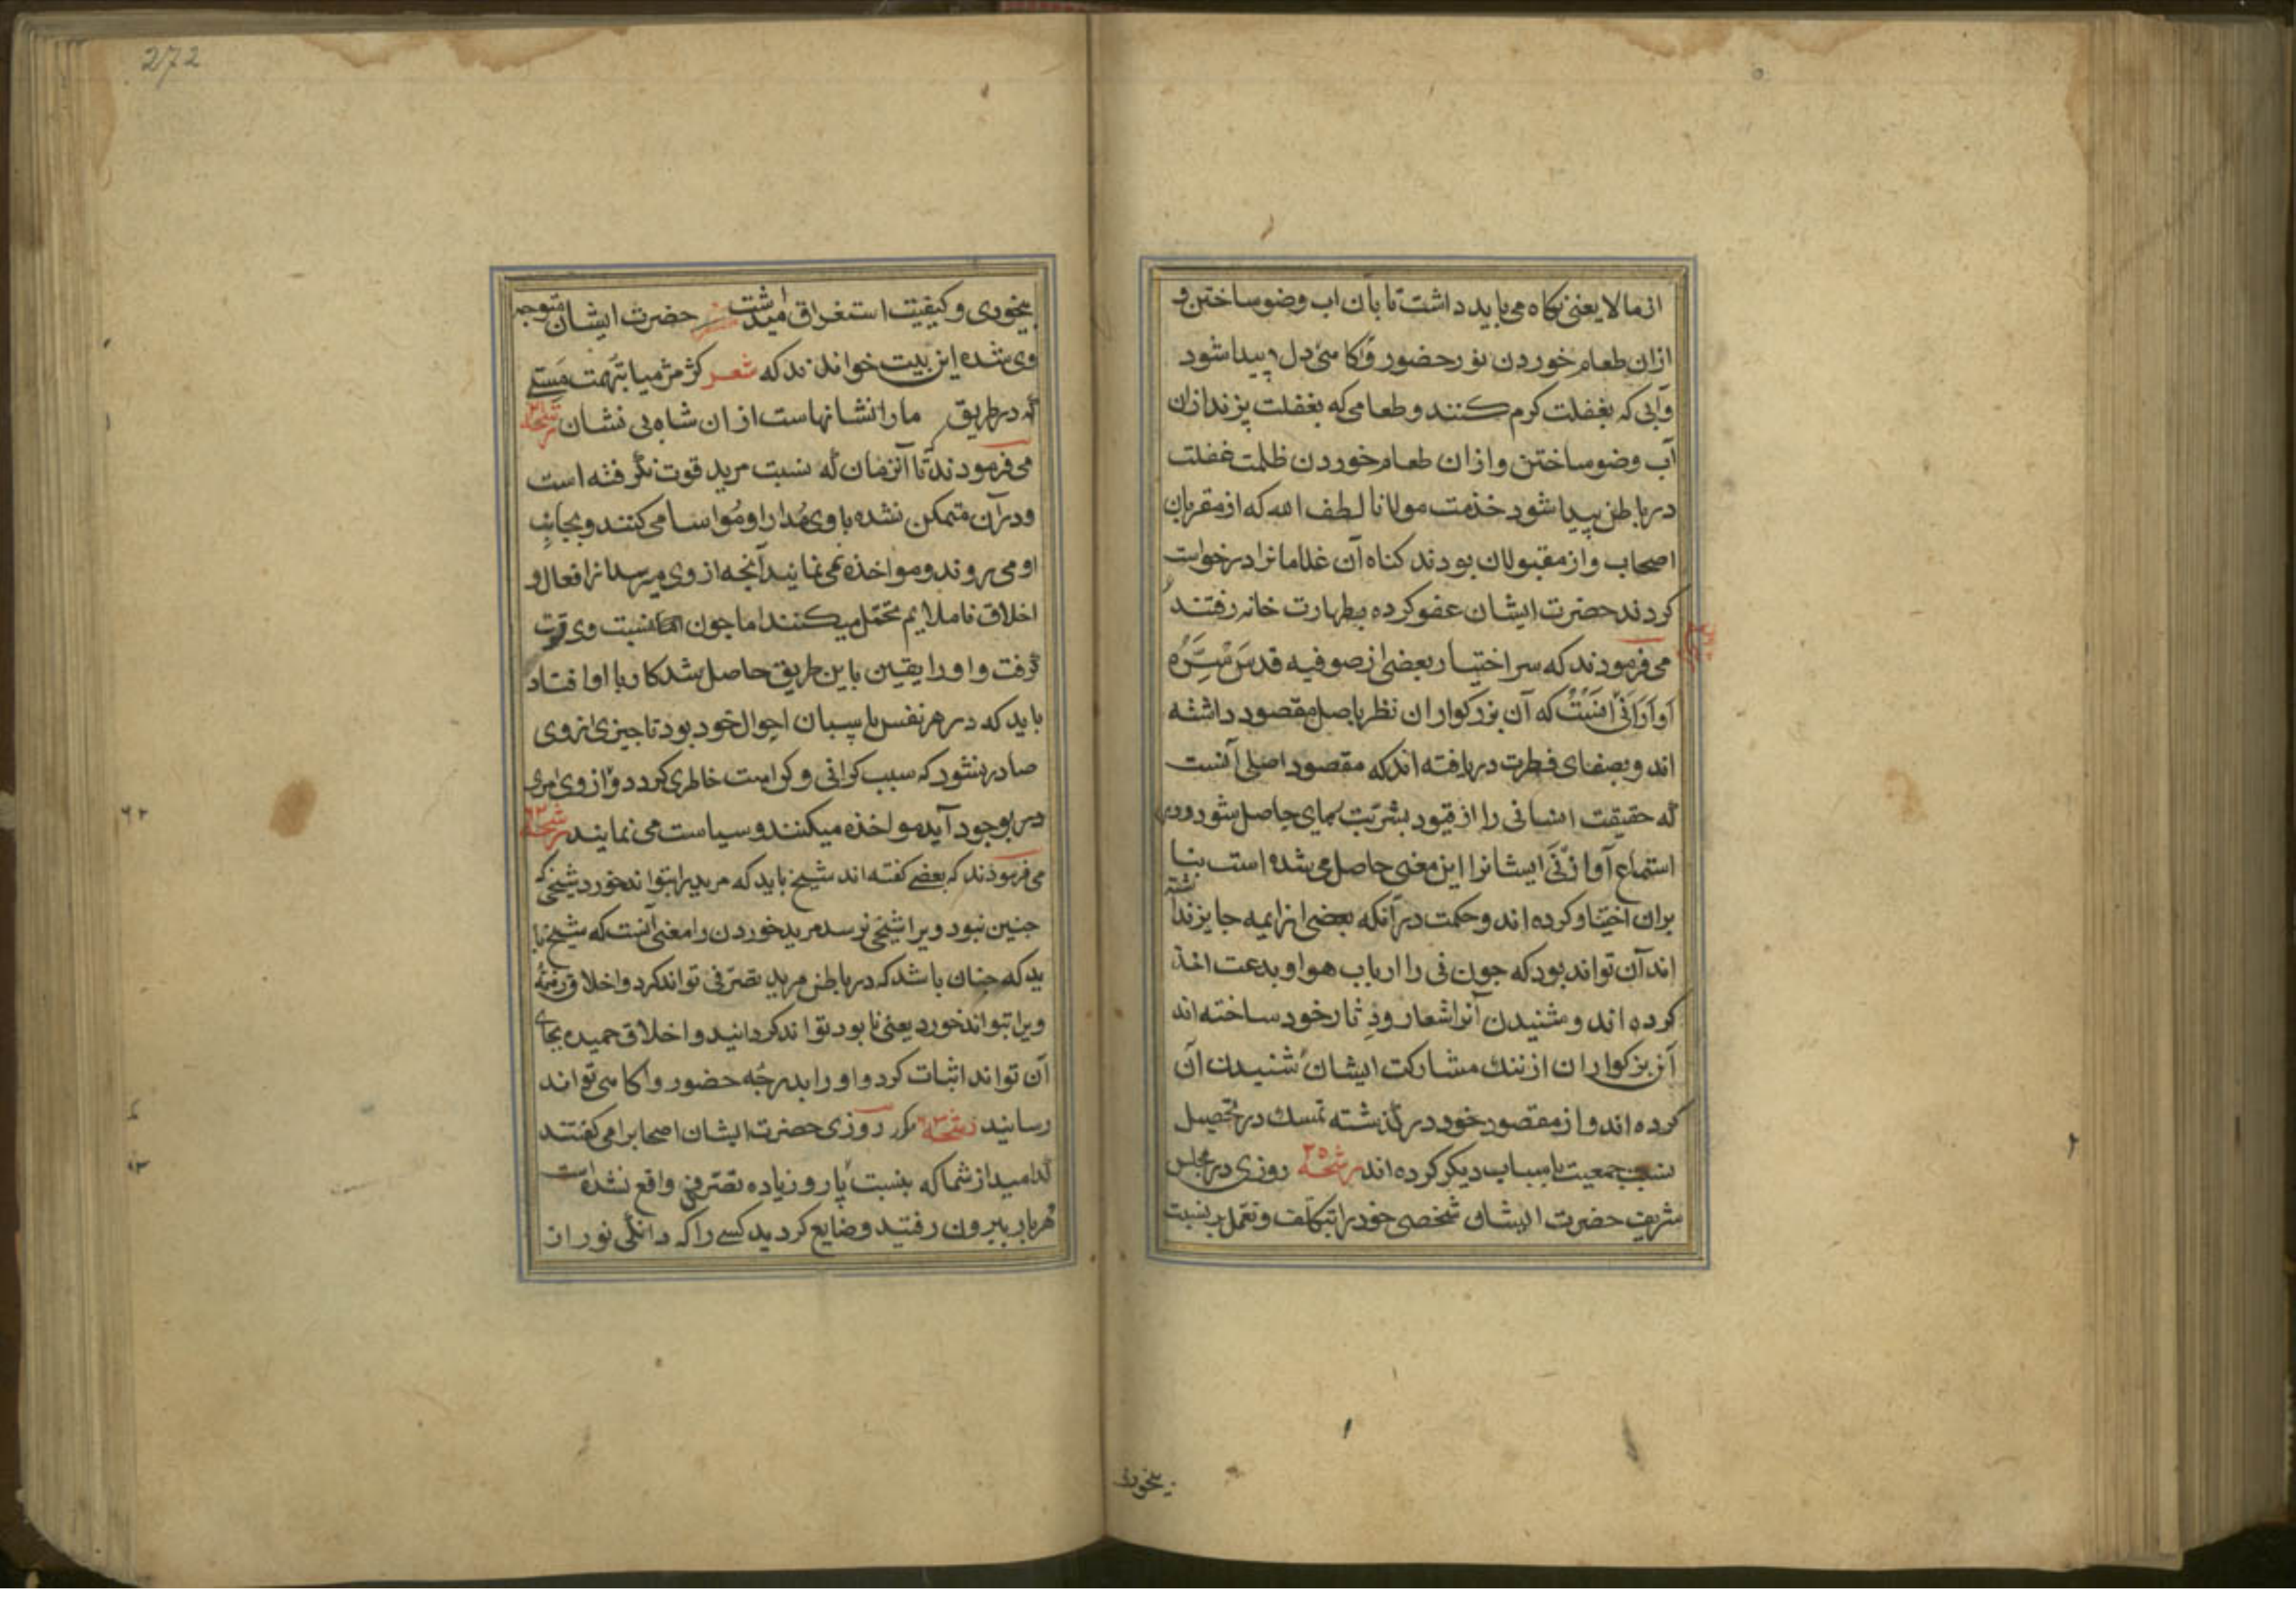 از مالا یعنی نکاه می باید داشت تا بان اب وضو ساختن و
ازان طعام خوردن نور حضور و آکاهئ دل پیدا شود
و آبی که بغفلت کرم کنند و طعامی که بغفلت پزند ازان
آب وضو ساختن و ازان طعام خوردن ظلمت غفلت
در باطن پیدا شود خذمت مولانا لطف الله که از مقربان
اصحاب و از مقبولان بودند کناه آن غلامانرا درخواست
کردند حضرت ایشان عفو کرده بطهارت خانه رفتند
می فرمودند که سر اختیار بعضی از صوفیه قدس سره
آواز نی انست که آن بزرکواران نظر باصل مقصود داشته
اند و بصفای فطرت دریافته اند که مقصود اصلی آنست
که حقیقت انسانی را از قیود بشریت رهای حاصل شود و در
استماع آواز نی ایشانرا این معنی حاصل می شده است بنا
بران اختیار کرده اند و حکمت در آنکه بعضی از ایمه جایز نداشته
اند آن تواند بود که چون نی را ارباب هوا و بدعت اخذ
کرده اند و شنیدن آنرا شعار و دثار خود ساخته اند
آن بزرکواران از ننك مشارکت ایشان شنیدن آن
کرده اند و از مقصود خود در گذشته تمسك در تحصیل
نسبت جمعیت باسباب دیکر کرده اند رشحه ٣٥ روزی در مجلس
شریف حضرت ایشان شخصی خود را بتکلف و تعمل بر نسبت
بیخودی
272
بیخودی و کیفیت استغراق میداشت حضرت ایشان متوجه
وی شده این بیت خواندند که شعر کژ مژ میا بتهمت مستی
که در طریق مارا نشانهاست ازان شاه بی نشان رشحه
می فرمودند تا آنزمان که نسبت مرید قوت نگرفته است
و در آن متمکن نشده با وی مدارا و مواسا می کنند و بجانب
او می روند و مواخذه نمی نمایند آنچه از وی میرسد از افعال و
اخلاق ناملایم تحمل میکنند اما چون نسبت وی قوت
گرفت و او را یقین باین طریق حاصل شد کار با او افتاد
باید که در هر نفس پاسبان احوال خود بود تا چیزی از وی
صادر نشود که سبب کرانی و کراهت خاطری کردد و از وی امری
در وجود آید مواخذه میکنند و سیاست می نمایند رشحه
می فرمودند که بعضی کفته اند شیخ باید که مرید را بتواند خورد شیخی که
چنین نبود ویرا شیخی نرسد مرید خوردن را معنی آنست که شیخ با
ید که چنان باشد که در باطن مرید تصرفی تواند کرد و اخلاق ذمیمه
ویرا بتواند خورد یعنی نابود تواند کردانید و اخلاق حمیده بجای
آن تواند اثبات کرد و او را بدرجه حضور و آکاهی تواند
رسانید رشحه مکرر روزی حضرت ایشان اصحابرا می کفتند
کدامید از شما که بنسبت پار و زیاده تصرفی واقع نشده است
هر بار بیرون رفتید و ضایع کردید کسی را که دانگی نور از